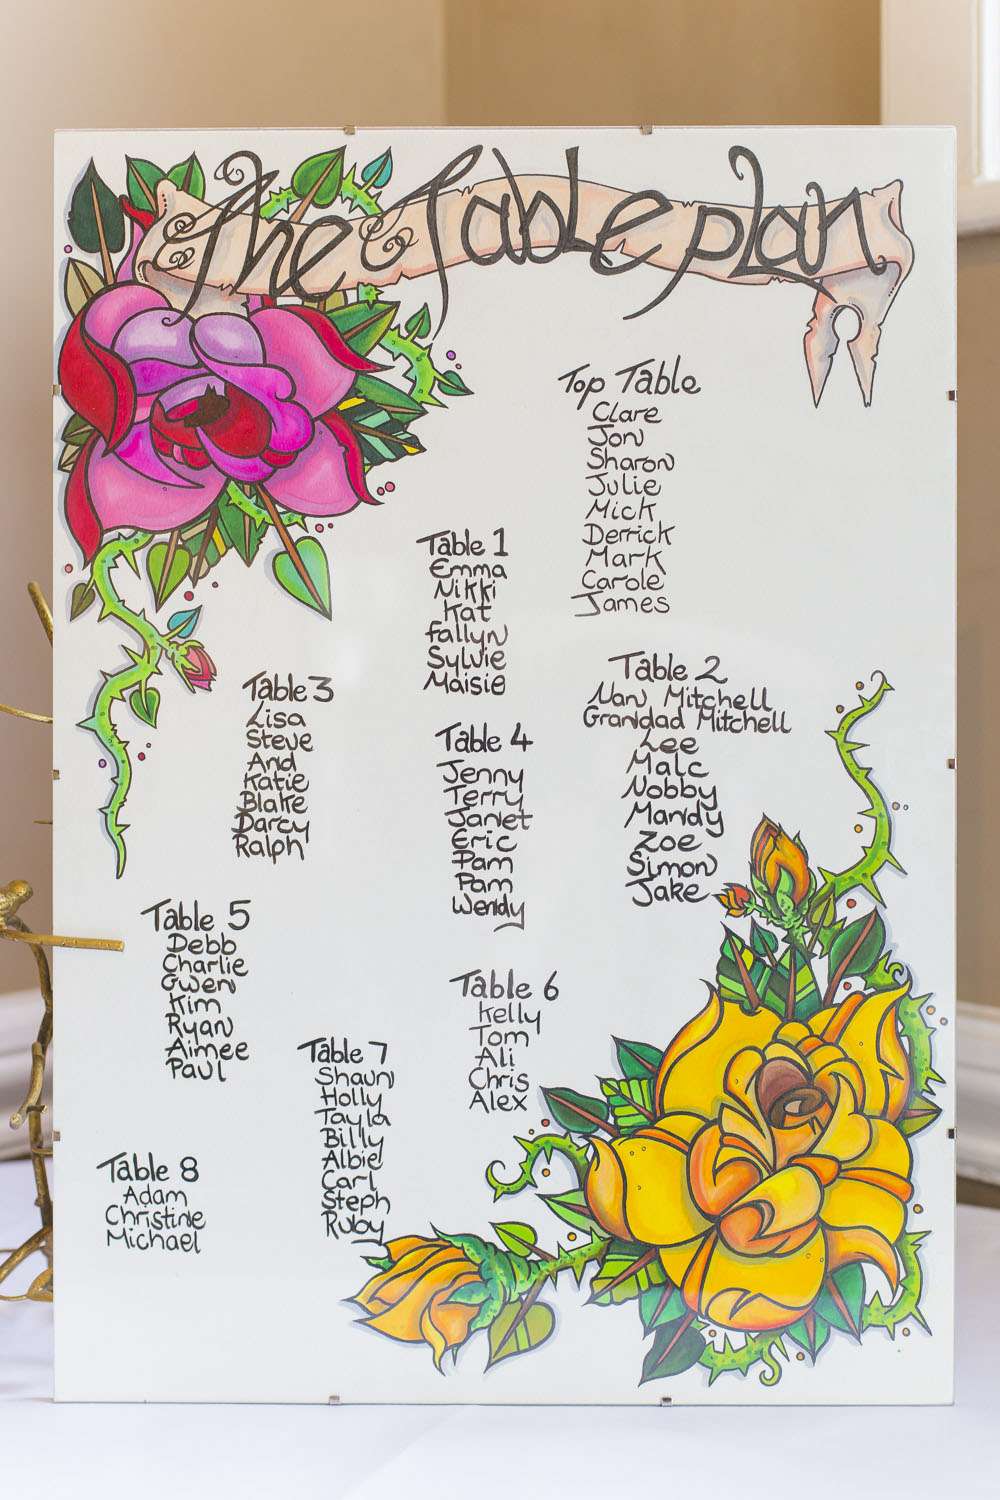 The Table plan
Top Table
Clare
Jon
Sharon
Julie
Mick
Derrick
Mark
Carole
James
Table 1
Emma
Nikki
Kat
Fallyn
Sylvie
Maisie
Table 2
Nan Mitchell
Grandad Mitchell
Lee
Malc
Nobby
Mandy
Zoe
Simon
Jake
Table 3
Lisa
Steve
And
Katie
Blake
Darcy
Ralph
Table 4
Jenny
Terry
Janet
Eric
Pam
Pam
Wendy
Table 5
Debb
Charlie
Gwen
Kim
Ryan
Aimee
Paul
Table 6
Kelly
Tom
Ali
Chris
Alex
Table 7
Shaun
Holly
Tayla
Billy
Albie
Carl
Steph
Ruby
Table 8
Adam
Christine
Michael